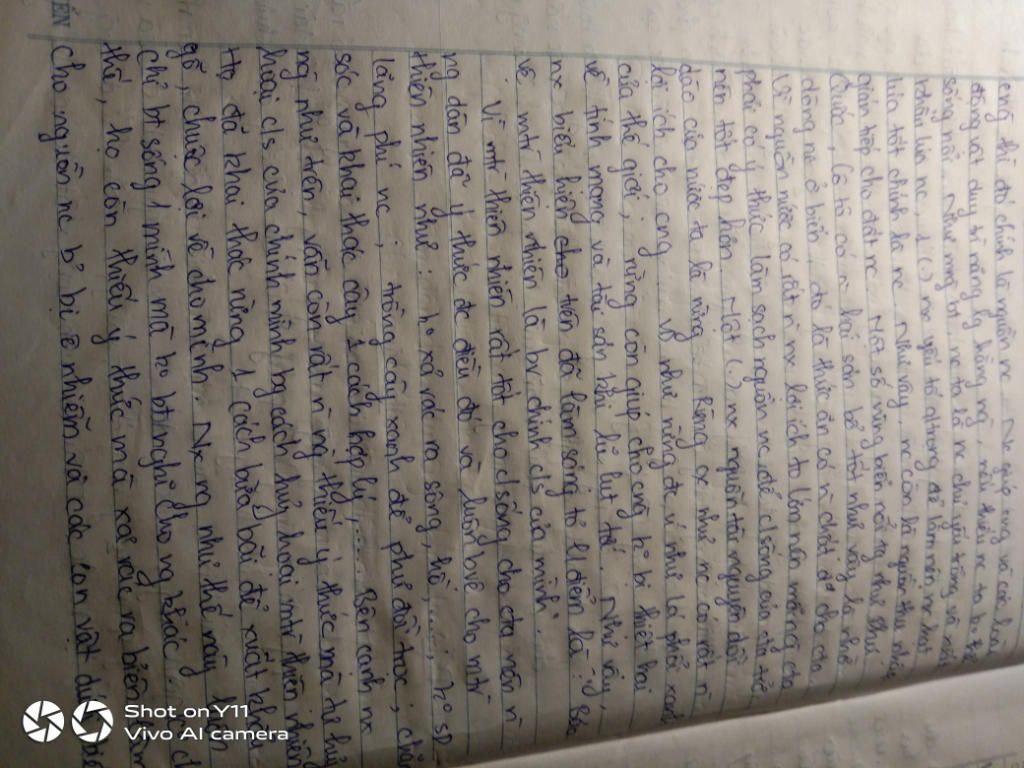 cng thì đó chính là nguồn nc. Nc giúp cng và các loài
động vật duy trì năng lg hằng ng, nếu thiếu nc ta k thể
sống nổi. Như mng bt, nc ta là nc chủ yếu trồng và
khẩu lúa nc, 1 (.) nx yếu tố qtrọng để làm nên nc hạt
lúa tốt chính là nc. Như vậy, nc còn là nguồn thu nhập
gián tiếp cho đất nc. Nc số vùng biển nổi như Phú
Quốc, Cô Tô có n hải sản bổ tốt như vậy là nhờ
dòng nc ở biển, đó là thức ăn có n chất d² cho cta.
Vì nguồn nước có rất n nx lợi ích to lớn nên mỗi ng cta
phải có ý thức làm sạch nguồn nc để c/sống của cta trở
nên tốt đẹp hơn. Một (.) nx nguồn tài nguyên dồi
dào của nước ta là rừng. Rừng cx như nc có rất n
lợi ích cho cng. Vd như rừng đc ví như lá phổi xanh
của thế giới; rừng còn giúp cho cng ko bị thiệt hại
về tính mạng và tài sản khi lũ lụt tới. Như vậy,
nx biểu hiện trên đã làm sáng tỏ l/điểm là: Bảo
vệ mtr thiên nhiên là bv chính c/s của mình.
Vì mtr thiên nhiên rất tốt cho c/sống cho cta nên n
ng dân đã ý thức đc điều đó và luôn bvệ cho mtr
thiên nhiên như: ko xả rác ra sông, hồ,...; ko sd
lãng phí nc; trồng cây xanh để phủ đồi trọc; chăm
sóc và khai thác cây 1 cách hợp lý;.... Bên cạnh nx
ng như trên, vẫn còn rất n ng thiếu ý thức mà
hoại c/s của chính mình bg cách hủy hoại mtr thiên nhiên
Họ đã khai thác rừng 1 cách bừa bãi để xuất khẩu
gỗ, chuộc lợi về cho mình. Nx ng như thế này
chỉ bt sống 1 mình mà ko bt nghĩ cho ng khác.
thế, họ còn thiếu ý thức mà xả rác ra biển,
cho nguồn nc bị ô nhiễm và các con vật dưới